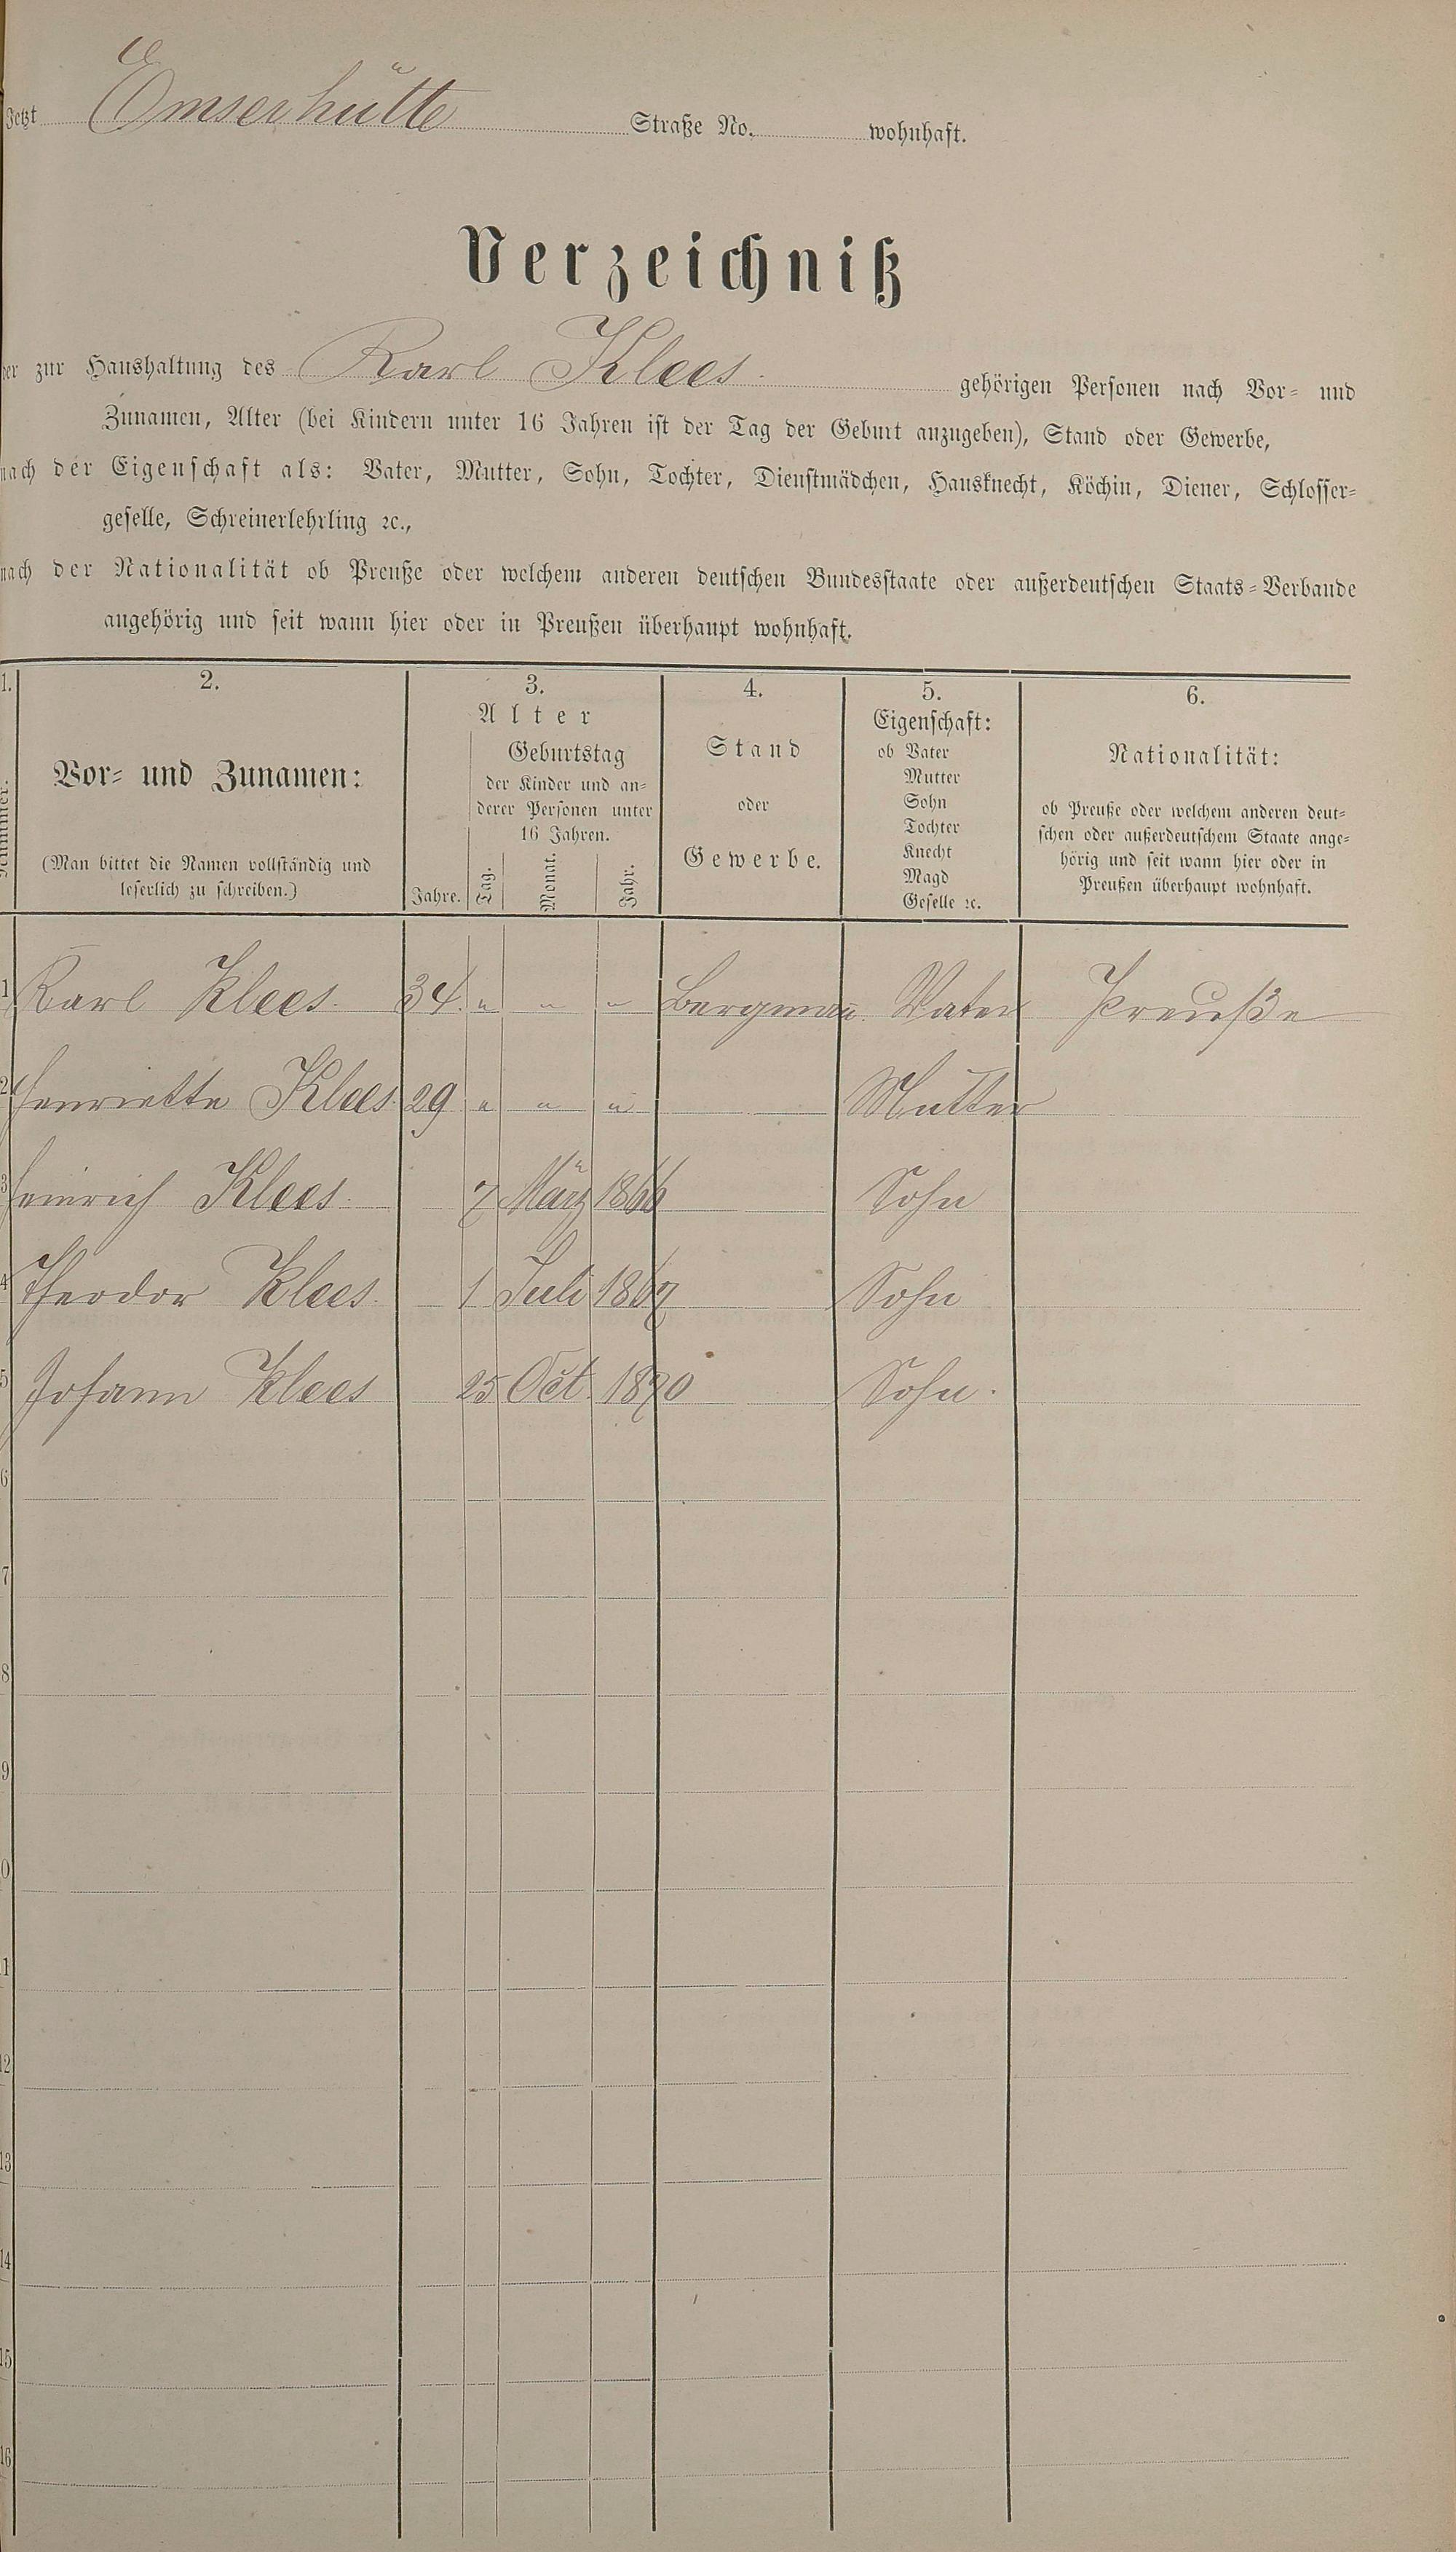 Jetzt Emserhütte Straße No. wohnhaft.
Verzeichniß
der zur Haushaltung des Karl Klees. gehörigen Personen nach Vor- und
Zunamen, Alter (bei Kindern unter 16 Jahren ist der Tag der Geburt anzugeben), Stand oder Gewerbe,
nach der Eigenschaft als: Vater, Mutter, Sohn, Tochter, Dienstmädchen, Hausknecht, Köchin, Diener, Schlosser-
geselle, Schreinerlehrling ꝛc.,
nach der Nationalität ob Preuße oder welchem anderen deutschen Bundesstaate oder außerdeutschen Staats-Verbande
angehörig und seit wann hier oder in Preußen überhaupt wohnhaft.
1. 2. 3. 4. 5. 6.
Nummer.
Vor- und Zunamen:
(Man bittet die Namen vollständig und
leserlich zu schreiben.)
Alter
Jahre.
Geburtstag
der Kinder und an-
derer Personen unter
16 Jahren.
Tag. Monat. Jahr.
Stand
oder
Gewerbe.
Eigenschaft:
ob Vater
Mutter
Sohn
Tochter
Knecht
Magd
Geselle ꝛc.
Nationalität:
ob Preuße oder welchem anderen deut-
schen oder außerdeutschem Staate ange-
hörig und seit wann hier oder in
Preußen überhaupt wohnhaft.
1 Karl Klees. 34. " " " Bergman̄. Vater Preuße
2 Henriette Klees. 29 " " " Mutter
3 Heinrich Klees. 7 März 1866 Sohn
4 Theodor Klees. 1 Juli 1867 Sohn
5 Johann Klees 25 Oct. 1870 Sohn.
6
7
8
9
0
1
12
13
14
15
16